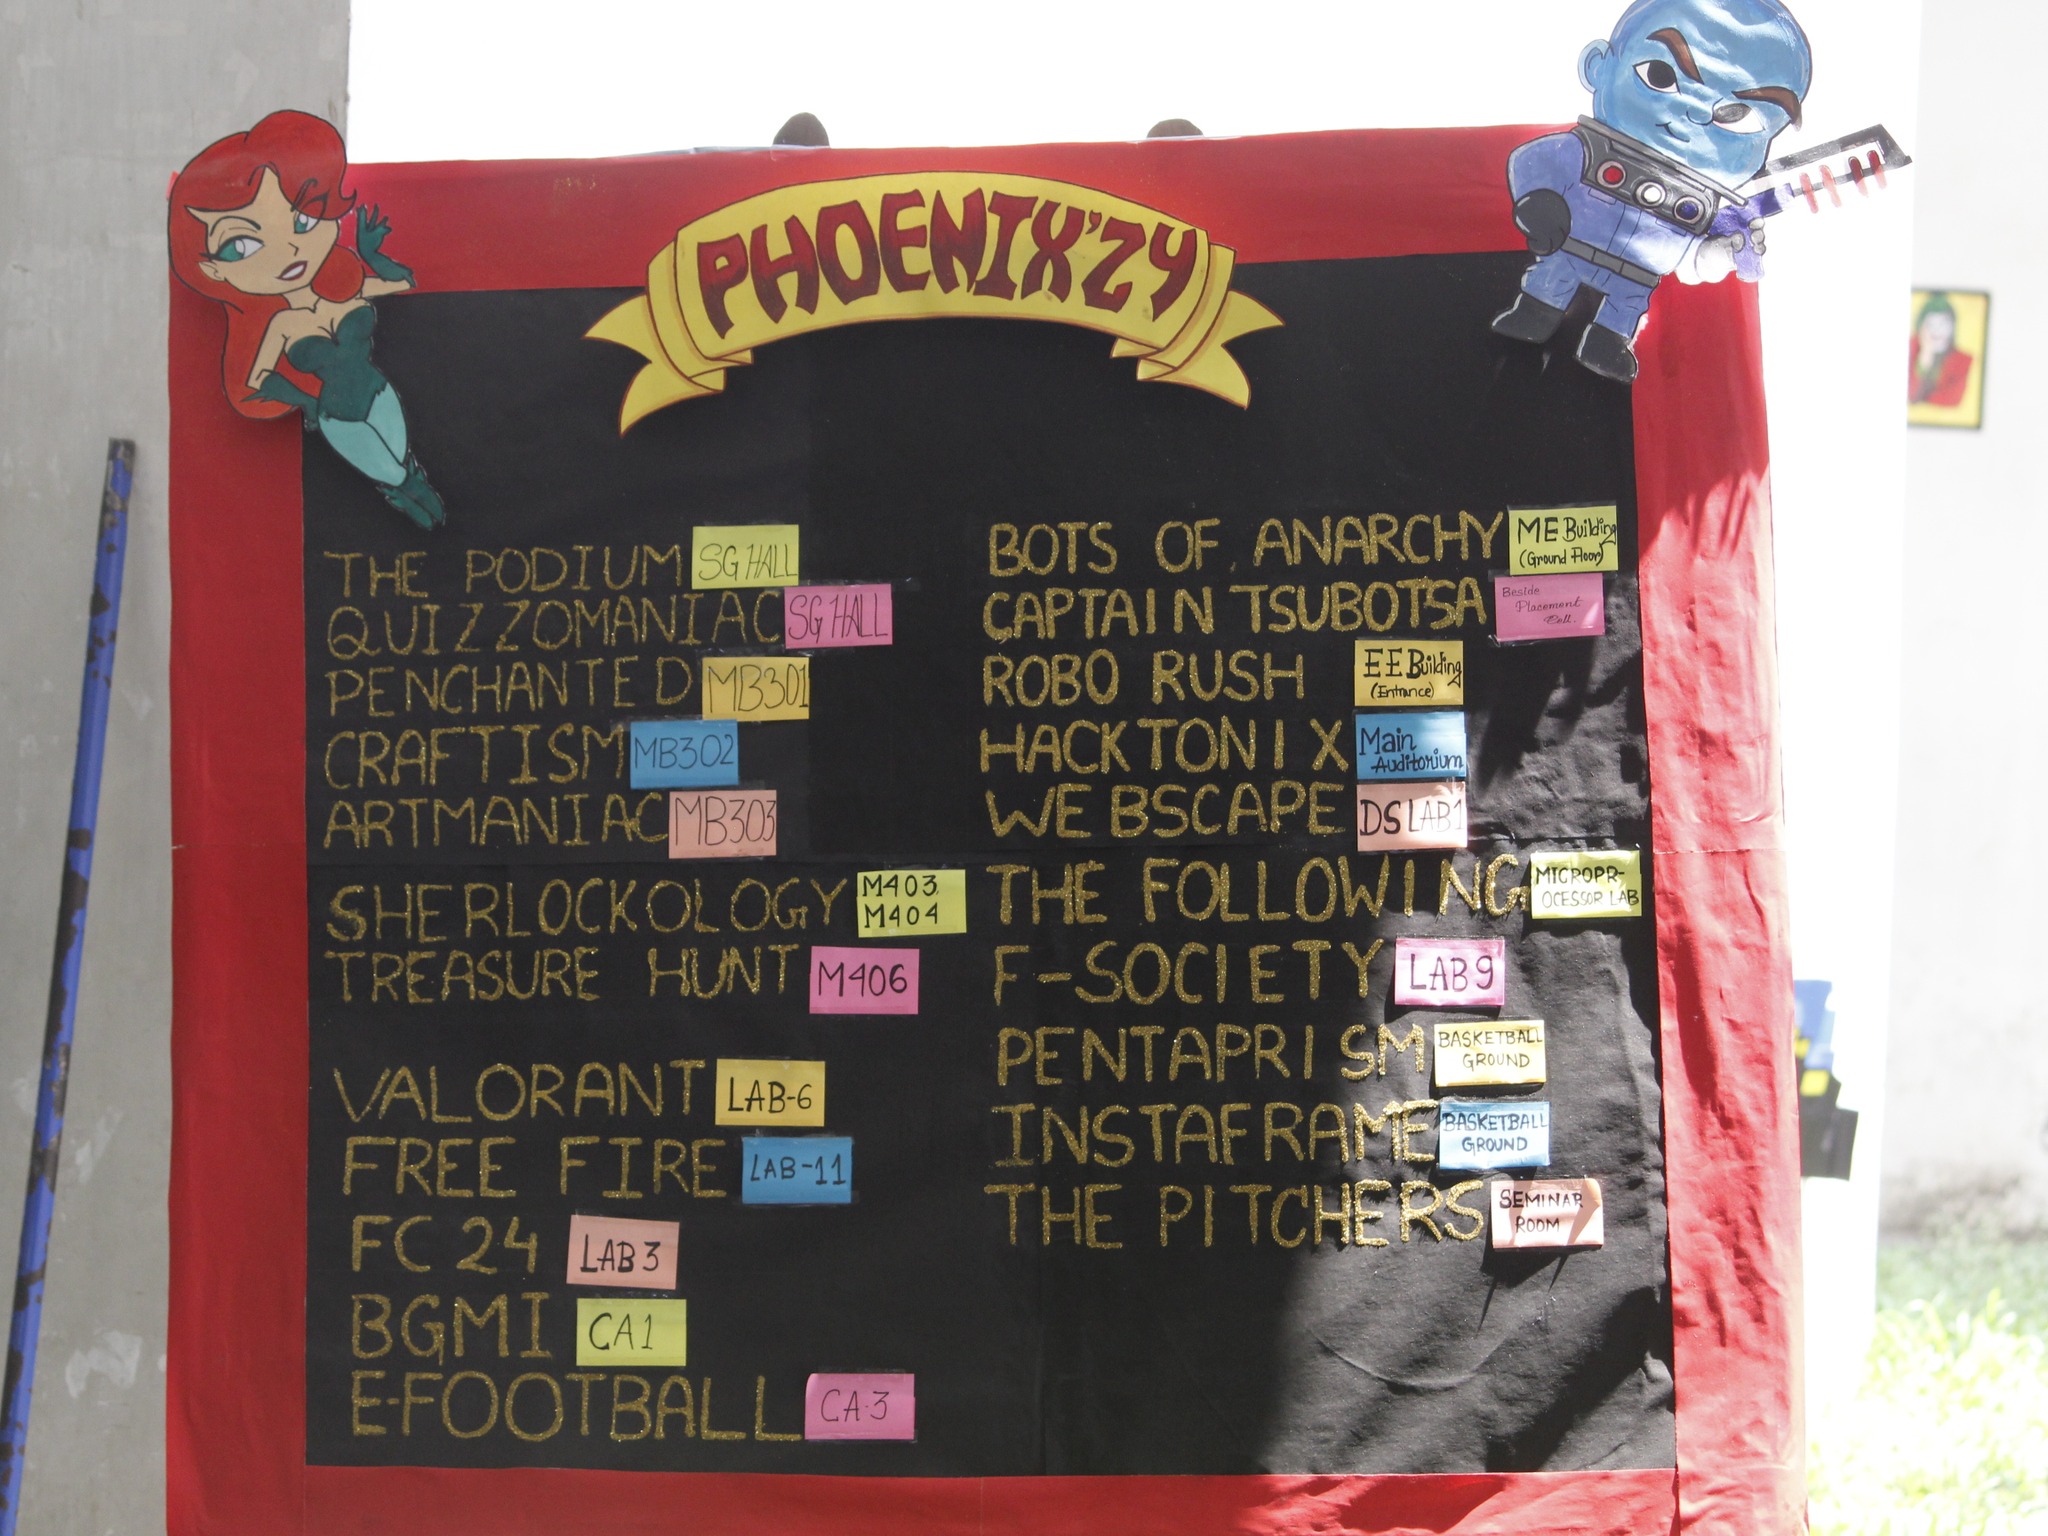 PHOENIX'ZY
THE PODIUM SG HALL
QUIZZOMANIAC SG HALL
PENCHANTED MB301
CRAFTISM MB302
ARTMANIAC MB303
SHERLOCKOLOGY M403 M404
TREASURE HUNT M406
VALORANT LAB-6
FREE FIRE LAB-11
FC 24 LAB 3
BGMI CA1
E-FOOTBALL CA-3
BOTS OF ANARCHY ME Building (Ground Floor)
CAPTAIN TSUBOTSA Beside Placement Cell.
ROBO RUSH EE Building (Entrance)
HACKTONIX Main Auditorium
WEBSCAPE DS LAB1
THE FOLLOWING MICROPR-OCESSOR LAB
F-SOCIETY LAB 9
PENTAPRISM BASKETBALL GROUND
INSTAFRAME BASKETBALL GROUND
THE PITCHERS SEMINAR ROOM